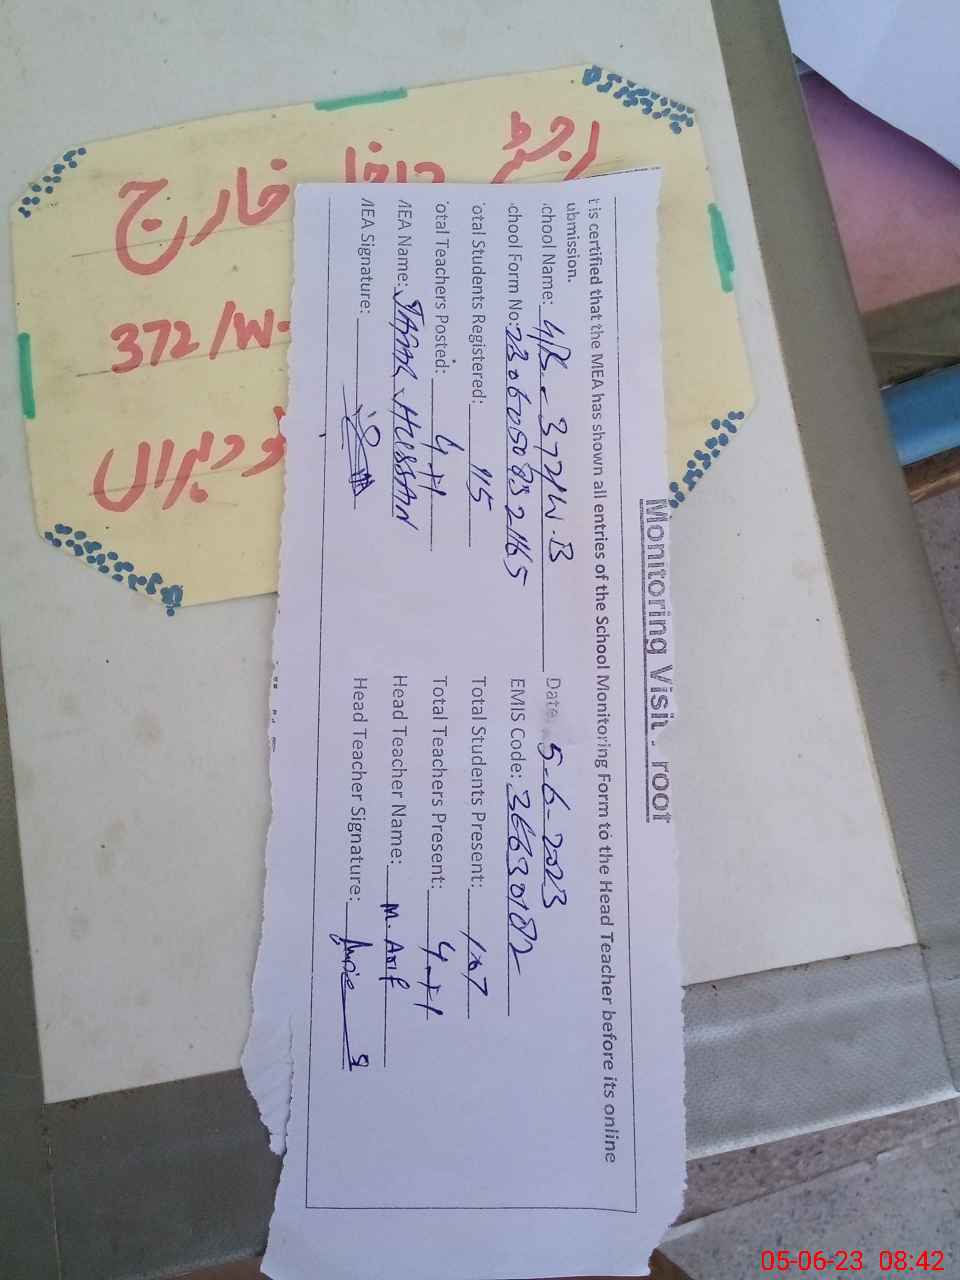 رجسٹر داخل خارج
372/W-
لودہراں
Monitoring Visit Proof
t is certified that the MEA has shown all entries of the School Monitoring Form to the Head Teacher before its online
ubmission.
chool Name: 372/W.B Date: 5-6-2023
chool Form No: EMIS Code: 36630182
otal Students Registered: 115 Total Students Present: 107
otal Teachers Posted: 4+1 Total Teachers Present: 4+1
MEA Name: HUSSAN Head Teacher Name: M. Arif
MEA Signature: Head Teacher Signature:
05-06-23 08:42